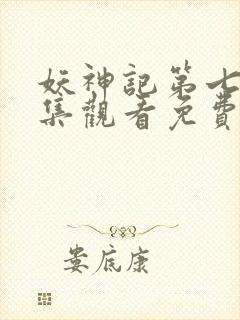 妖神記第七
集觀看免費
娄底康